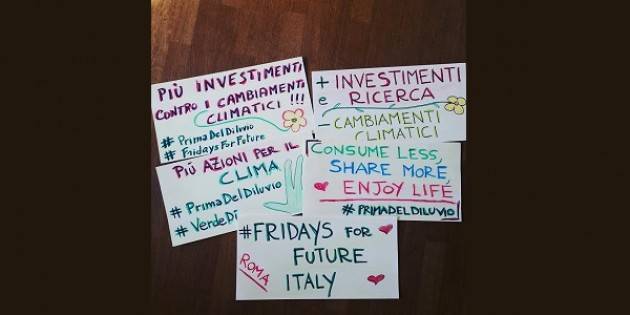 PIÙ INVESTIMENTI
CONTRO I CAMBIAMENTI
CLIMATICI !!!
# PrimaDelDiluvio
# FridaysForFuture
+ INVESTIMENTI
e RICERCA
- CAMBIAMENTI
CLIMATICI
PIÙ AZIONI PER IL
CLIMA
# PrimaDelDiluvio
# VerdeDì
CONSUME LESS,
SHARE MORE,
ENJOY LIFE
#PRIMADELDILUVIO
#FRIDAYS FOR
FUTURE
ITALY
ROMA